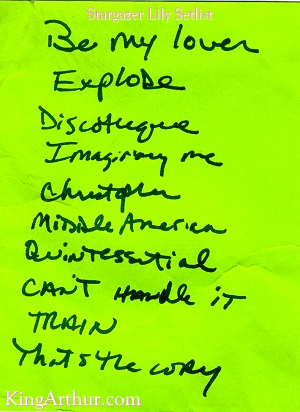 Stargazer Lily Setlist
Be my lover
Explode
Discotheque
Imagining me
Christopher
Middle America
Quintessential
CAN'T HANDLE IT
TRAIN
That's the way
KingArthur.com